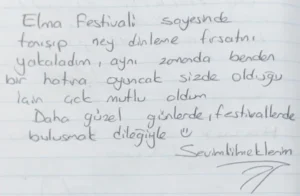 Elma Festivali sayesinde
tanışıp ney dinleme fırsatnı
yakaladım, aynı zamanda benden
bir hatıra oyuncak sizde olduğu
için çok mutlu oldum
Daha güzel günlerde, festivallerde
buluşmak dileğiyle ☺